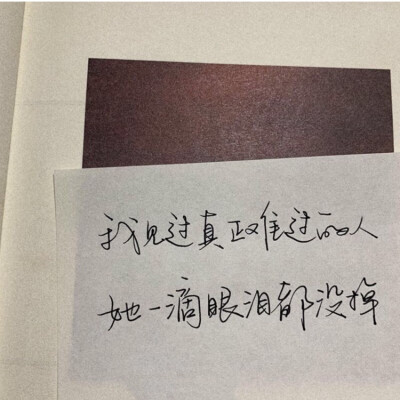 我见过真正难过的人
她一滴眼泪都没掉